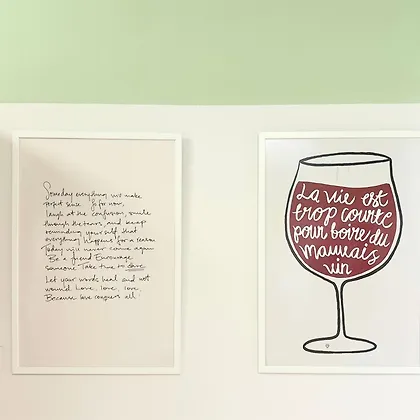 Someday everything will make
perfect sense. So for now,
laugh at the confusion, smile
through the tears, and keep
reminding yourself that
everything happens for a reason
Today will never come again
Be a friend. Encourage
someone. Take time to care
Let your words heal and not
wound. Love, love, love.
Because love conquers all
La vie est
trop courte
pour boire du
mauvais
vin